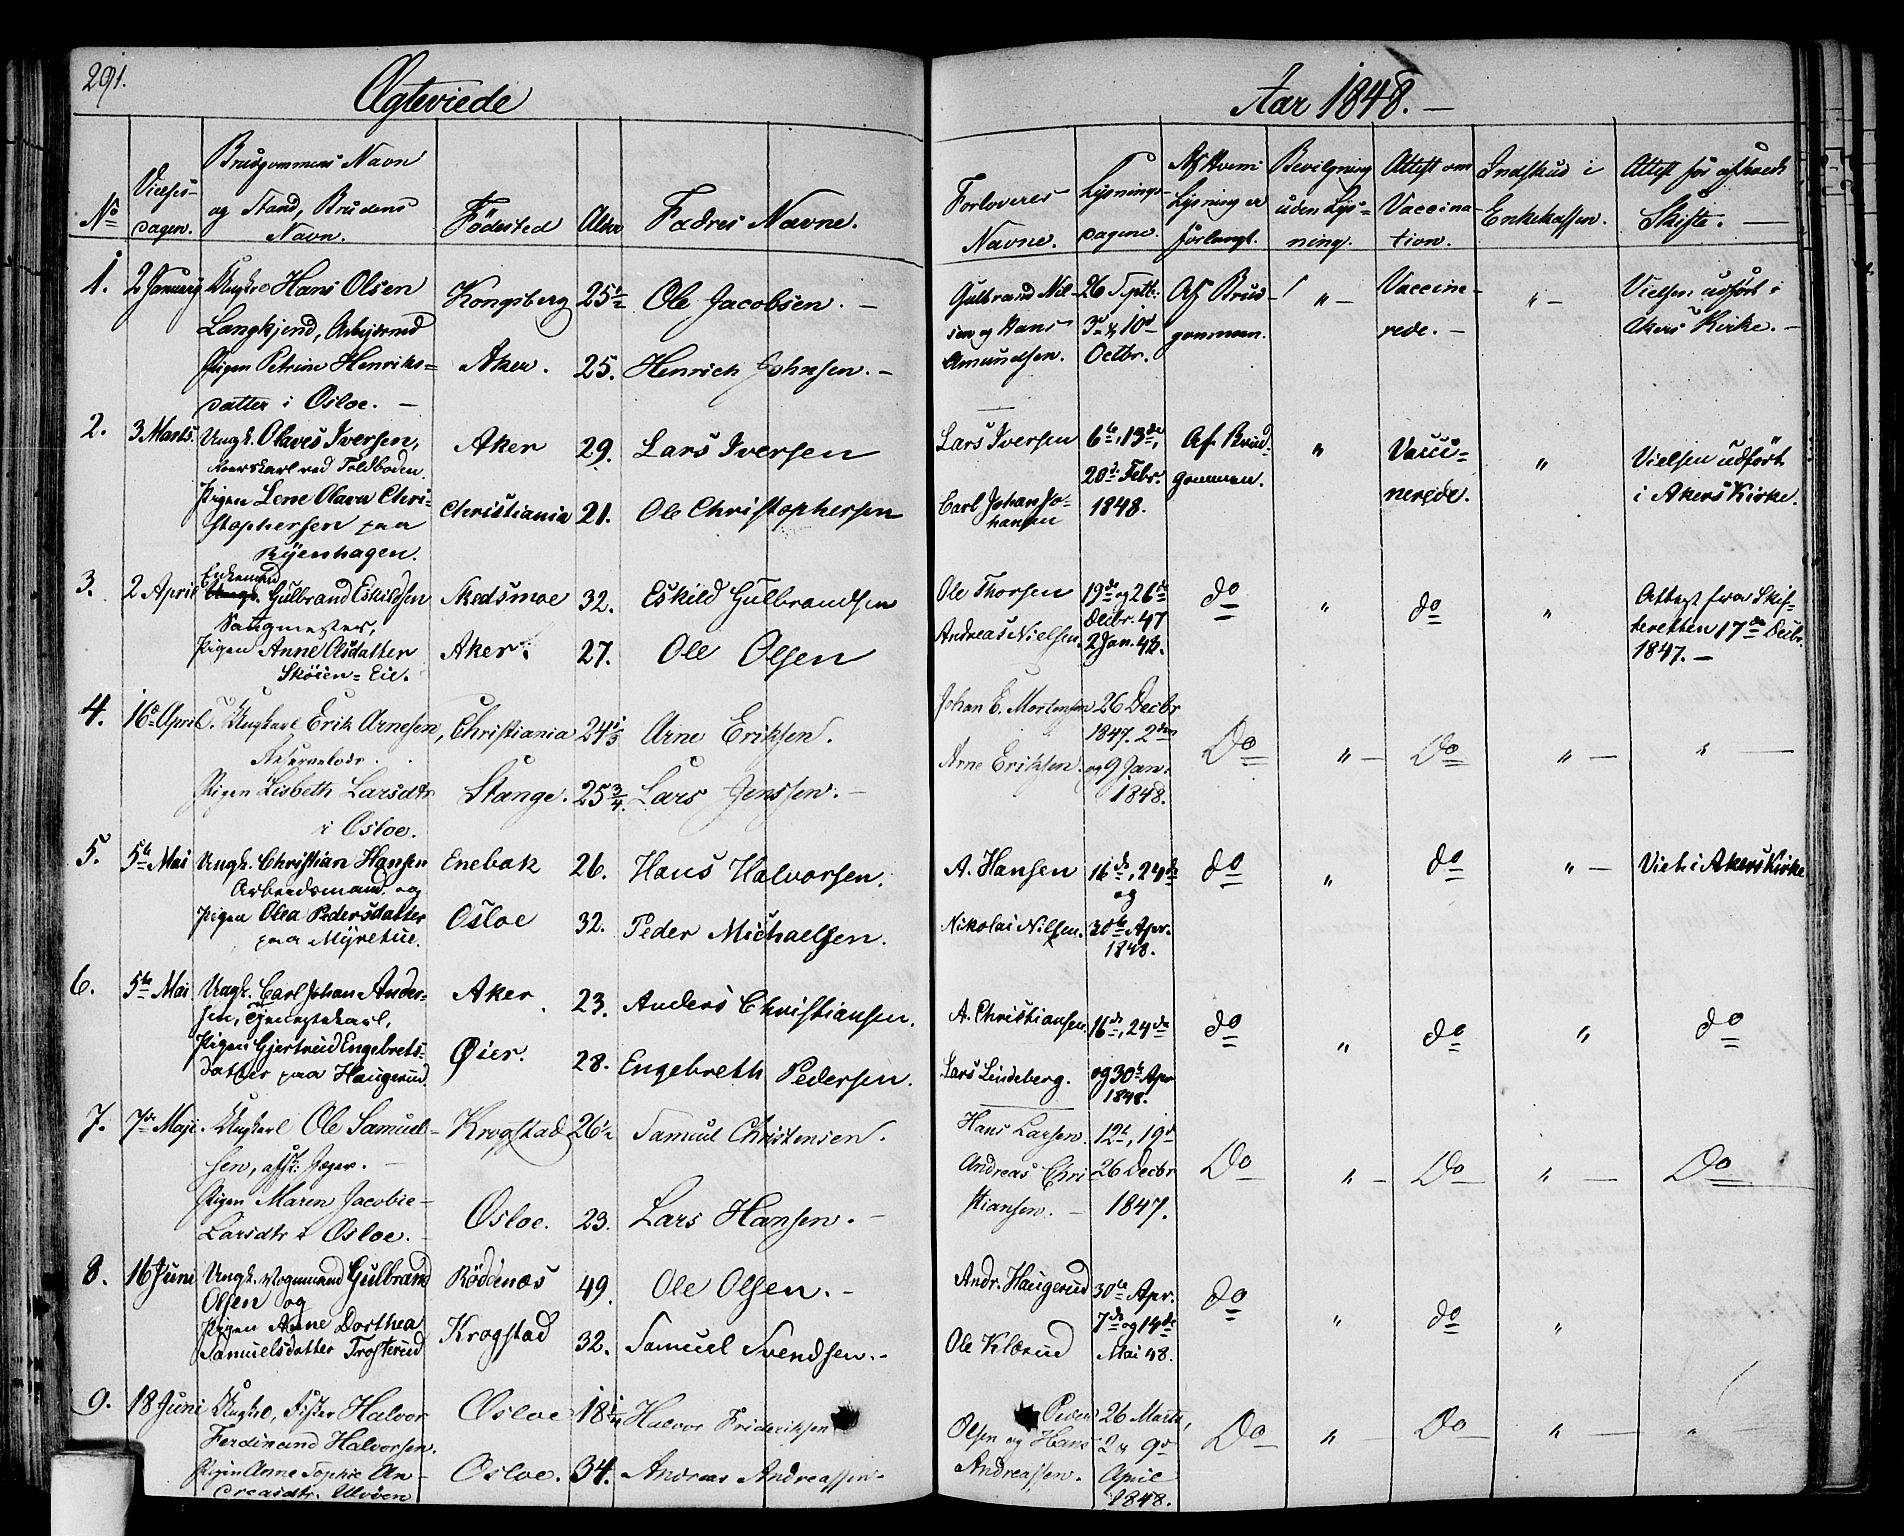 291.
Ægteviede
Aar 1848. —
No
Vielses-
dagen.
Brudgommens Navn
og Stand, Brudens
Navn.
Fødested
Alder
Fædres Navne.
Forloveres
Navne.
Lysnings-
dagene.
Af Hvem
Lysning er
forlangt.
Bevilgning
uden Lys=
ning.
Attest om
Vaccina-
tion.
Indskud i
Enkekassen.
Attest for afholdt
Skifte. —
1. 2 Januar Ungk. Hans Olsen
Langkjend, Arbejdsmd
Pigen Petrine Henriks=
datter i Osloe. —
Kongsberg 25½ Ole Jacobsen. —
Aker. 25. Henrich Johnsen. —
Gulbrand Nil-
sen og Hans
Amundsen.
26 Septbr.
3de & 10de
Octbr.
Af Brud-
gommen.
" —
Vaccine-
rede. —
" —
Vielsen udført i
Akers Kirke. —
2. 3 Marts. Ungk. Olaves Iversen,
Roerskarl ved Toldboden.
Pigen Lene Olava Chri-
stophersen paa
Ryenhagen.
Aker 29. Lars Iversen
Christiania 21. Ole Christophersen
Lars Iversen
Carl Johan Jo-
hansen
6te, 13de,
20de Febr.
1848.
Af Brud-
gommen.
"
Vacci=
nerede.
"
Vielsen udført
i Akers Kirke.
3. 2 April Enkemand
Ungk. Gulbrand Eskildsen
Saugmester,
Pigen Anne Olsdatter
Skøien=Eie.
Skedsmoe 32. Eskild Gulbrandsen
Aker. 27. Ole Olsen
Ole Thorsen
Andreas Nielsen.
19de og 26de
Decbr. 47
2 Jan. 48.
do
"
do
"
Attest fra Skif-
teretten 17de Decbr.
1847. —
4. 16de April. Ungkarl Erik Arnesen,
Pigen Lisbeth Larsdtr
i Osloe.
Christiania 24⅓ Arne Eriksen.
Stange. 25¾. Lars Jenssen. —
Johan E. Mortensen
Arne Eriksen.
26 Decbr
1847. 2den
og 9 Jan.
1848.
Do
" —
Do
" —
" —
5. 5te Mai Ungk. Christian Hansen
Arbeidsmand, og
Pigen Olea Pedersdatter
paa Myretue.
Enebak 26. Hans Halvorsen.
Osloe 32. Peder Michaelsen.
A. Hansen
Nikolai Nilsen.
16de, 24de
og
30te Apr.
1848.
do
"
do
" —
Viet i Akers Kirke
6. 5te Mai Ungk. Carl Johan Ander-
sen, Tjenestekarl,
Pigen Gjertrud Engebrets-
datter paa Haugerud.
Aker. 23. Anders Christiansen.
Øier. 28. Engebreth Pedersen.
A. Christiansen.
Lars Lindeberg.
16de, 24de
og 30te Apr
1848.
do
"
do
"
do
7. 7de Maji. Ungkarl Ole Samuel-
sen, afsk. Jæger. —
Pigen Maren Jacobie-
Larsdtr i Osloe. —
Krogstad 26½ Samuel Christensen.
Osloe. 23. Lars Hansen. —
Hans Larsen.
Andreas Chri
stiansen. —
12te, 19de
26 Decbr
1847.
Do
" —
Do
" —
Do
8. 16 Juni Ungk. Vognmand Gulbrand
Olsen og
Pigen Anne Dorthea
Samuelsdatter Trosterud
Röddenæs 49. Ole Olsen. —
Krogstad 32. Samuel Svendsen. —
Andr. Haugerud
Ole Klbrud
30te Apr.
7de og 14de
Mai 48.
do
"
do
"
9. 18 Juni Ungk., Fisker Halvor
Ferdinand Halvorsen.
Pigen Anne Sophie An-
dreasdtr. Ulvøen
Osloe 18¼ Halvor Frideriksen
Osloe. 34. Andreas Andreassen-
Peder
Olsen og Hans
Andreassen.
26 Marts,
2 & 9de
April
1848.
Do
" —
Do
" —
"